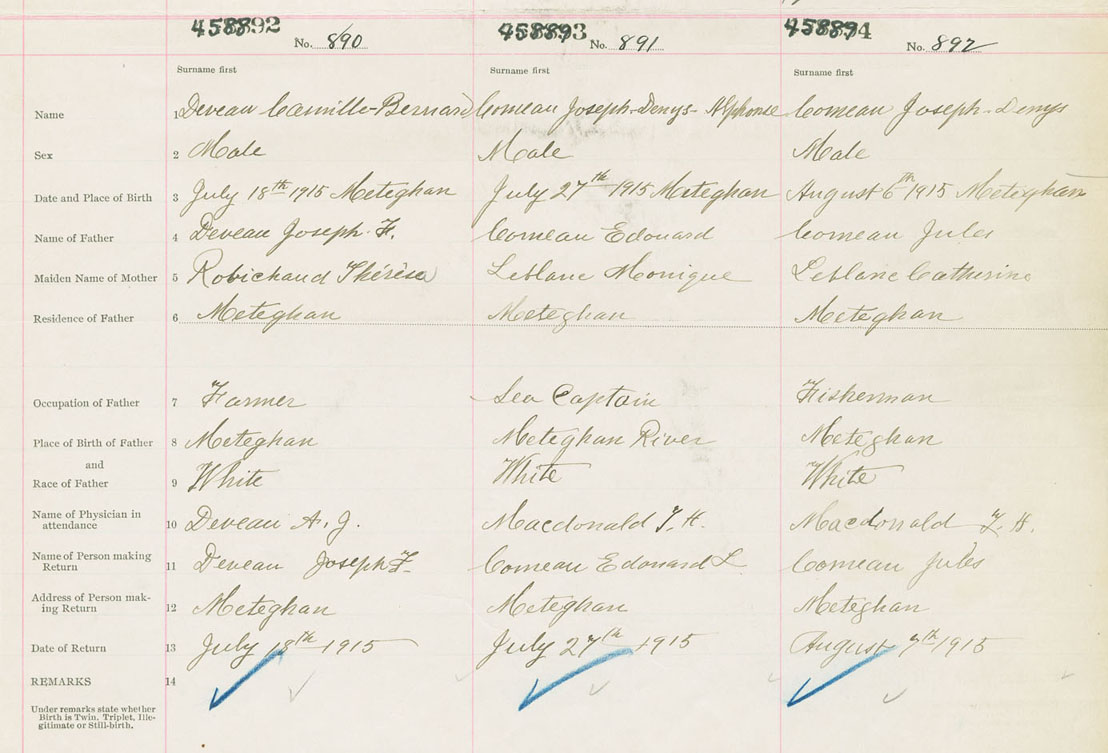 458892 No. 890 458893 No. 891 458894 No. 892
Surname first Surname first Surname first
Name 1 Deveau Camille-Bernard Comeau Joseph-Denys-Alphonse Comeau Joseph-Denys
Sex 2 Male Male Male
Date and Place of Birth 3 July 18th 1915 Meteghan July 27th 1915 Meteghan August 6th 1915 Meteghan
Name of Father 4 Deveau Joseph. F. Comeau Edouard Comeau Jules
Maiden Name of Mother 5 Robichaud Thérèse Leblanc Monique Leblanc Catherine
Residence of Father 6 Meteghan Meteghan Meteghan
Occupation of Father 7 Farmer Sea Captain Fisherman
Place of Birth of Father 8 Meteghan Meteghan River Meteghan
and
Race of Father 9 White White White
Name of Physician in
attendance 10 Deveau A. J. Macdonald T. H. Macdonald T. H.
Name of Person making
Return 11 Deveau Joseph F. Comeau Edouard L. Comeau Jules
Address of Person mak-
ing Return 12 Meteghan Meteghan Meteghan
Date of Return 13 July 18th 1915 July 27th 1915 August 7th 1915
REMARKS 14
Under remarks state whether
Birth is Twin. Triplet, Ille-
gitimate or Still-birth.